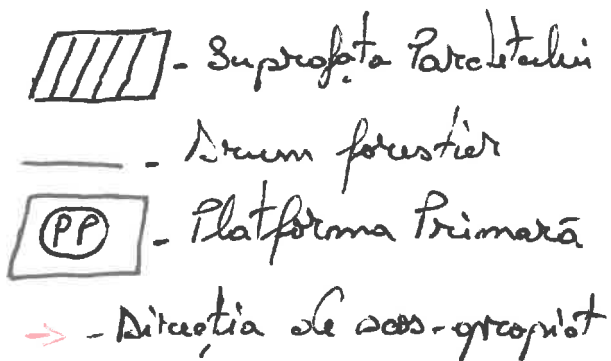 - Suprafața Parchetului
- Drum forestier
PP - Platforma Primară
- Direcția de scos-apropiat